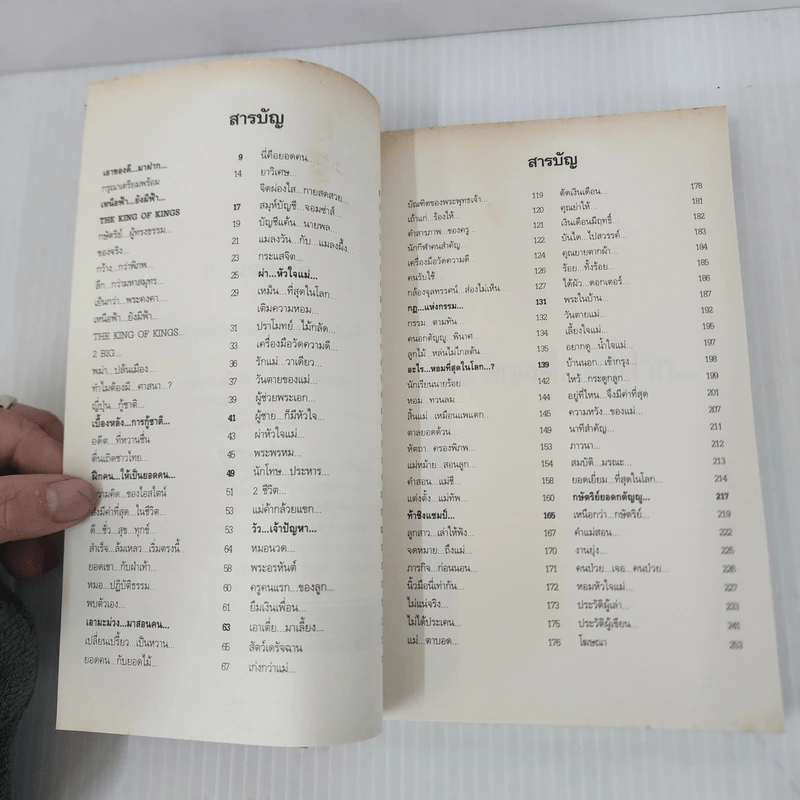 สารบัญ
เอาของดี...มาฝาก... 9
กรุณาเตรียมพร้อม 14
เหนือฟ้า...ยังมีฟ้า...
THE KING OF KINGS 17
กษัตริย์...ผู้ทรงธรรม... 19
ของจริง... 21
กว้าง...กว่าพิภพ... 23
ลึก...กว่ามหาสมุทร 25
เย็นกว่า...พระคงคา 29
เหนือฟ้า...ยังมีฟ้า...
THE KING OF KINGS... 31
2 BIG... 33
พม่า...ปล้นเมือง... 36
ทำไมต้องมี...ศาสนา...? 37
ญี่ปุ่น...กู้ชาติ... 39
เบื้องหลัง...การกู้ชาติ... 41
อดีต...ที่หวานชื่น 43
ตื่นเถิดชาวไทย... 45
ฝึกคน...ให้เป็นยอดคน... 49
ความคิด...ของไอสไตน์ 51
สิ่งมีค่าที่สุด...ในชีวิต... 53
ดี...ชั่ว...สุข...ทุกข์ 53
สำเร็จ...ล้มเหลว...เริ่มตรงนี้... 64
ยอดเขา...กับฝ่าเท้า 58
หมอ...ปฏิบัติธรรม... 60
พบตัวเอง... 61
เอามะม่วง...มาสอนคน... 63
เปลี่ยนเปรี้ยว...เป็นหวาน 65
ยอดคน...กับยอดไม้... 67
นี่คือยอดคน...
ยาวิเศษ...
จิตผ่องใส...กายสดสวย...
สมุห์บัญชี...จอมซ่าส์...
บัญชีแค้น...นายพล...
แมลงวัน...กับ...แมลงผึ้ง...
กระแสจิต...
ผ่า...หัวใจแม่...
เหม็น...ที่สุดในโลก...
เติมความหอม...
ปราโมทย์...ไม้กลัด...
เครื่องมือวัดความดี...
รักแม่...วาเดียว...
วันตายของแม่...
ผู้ช่วยพระเอก...
ผู้ชาย...ก็มีหัวใจ...
ผ่าหัวใจแม่...
พระพรหม...
นักโทษ...ประหาร...
2 ชีวิต...
แม่ค้ากล้วยแขก...
วัว...เจ้าปัญหา...
หมอนวด...
พระอรหันต์
ครูคนแรก...ของลูก...
ยืมเงินเพื่อน...
เอาเตี่ย...มาเลี้ยง...
สัตว์เดรัจฉาน
เก่งกว่าแม่...
สารบัญ
บัณฑิตของพระพุทธเจ้า... 119
เถ้าแก่...ร้องไห้... 120
คำสารภาพ...ของครู... 121
นักกีฬาคนสำคัญ... 122
เครื่องมือวัดความดี 124
คนรับใช้... 126
กล้องจุลทรรศน์...ส่องไม่เห็น... 127
กฎ...แห่งกรรม... 131
กรรม...ตามทัน... 132
คนอกตัญญู...พินาศ 134
ลูกไม้...หล่นไม่ไกลต้น 135
อะไร...หอมที่สุดในโลก...? 139
นักเรียนนายร้อย... 142
หอม...ทวนลม... 144
สิ้นแม่...เหมือนแพแตก... 145
ตาลยอดด้วน... 147
หัตถา...ครองพิภพ... 149
แม่หม้าย...สอนลูก 154
คำสอน...แม่ชี... 157
แต่งตั้ง...แม่ทัพ... 160
ท้าชิงแชมป์... 165
ลูกสาว...เล่าให้ฟัง... 167
จดหมาย...ถึงแม่... 170
ภารกิจ...ก่อนนอน... 171
นิ้วมือนี่เท่ากัน... 172
ไม่แน่จริง... 173
ไม่ได้ประเคน... 175
แม่...ตาบอด... 176
ตัดเงินเดือน... 178
คุณย่าให้... 181
เงินเดือนมีฤทธิ์... 182
บันได...ไปสวรรค์... 183
คุณยายตากผ้า... 184
ร้อย...ทั้งร้อย... 185
ได้ผัว...ดอกเตอร์... 186
พระในบ้าน... 187
วันตายแม่... 192
เลี้ยงใจแม่... 195
อยากดู...น้ำใจแม่... 197
บ้านนอก...เข้ากรุง... 198
ไหว้...กระดูกลูก...
อยู่ที่ไหน...จึงมีค่าที่สุด 201
ความหวัง...ของแม่... 207
นาทีสำคัญ... 211
ภาวนา... 212
สมบัติ...มรณะ... 213
ยอดเยี่ยม...ที่สุดในโลก... 214
กษัตริย์ยอดกตัญญู... 217
เหนือกว่า...กษัตริย์... 219
คำแม่สอน... 222
งานยุ่ง... 225
คนป่วย...เจอ...คนป่วย... 226
หอมหัวใจแม่... 227
ประวัติผู้เล่า... 233
ประวัติผู้เขียน... 241
โฆษณา 253